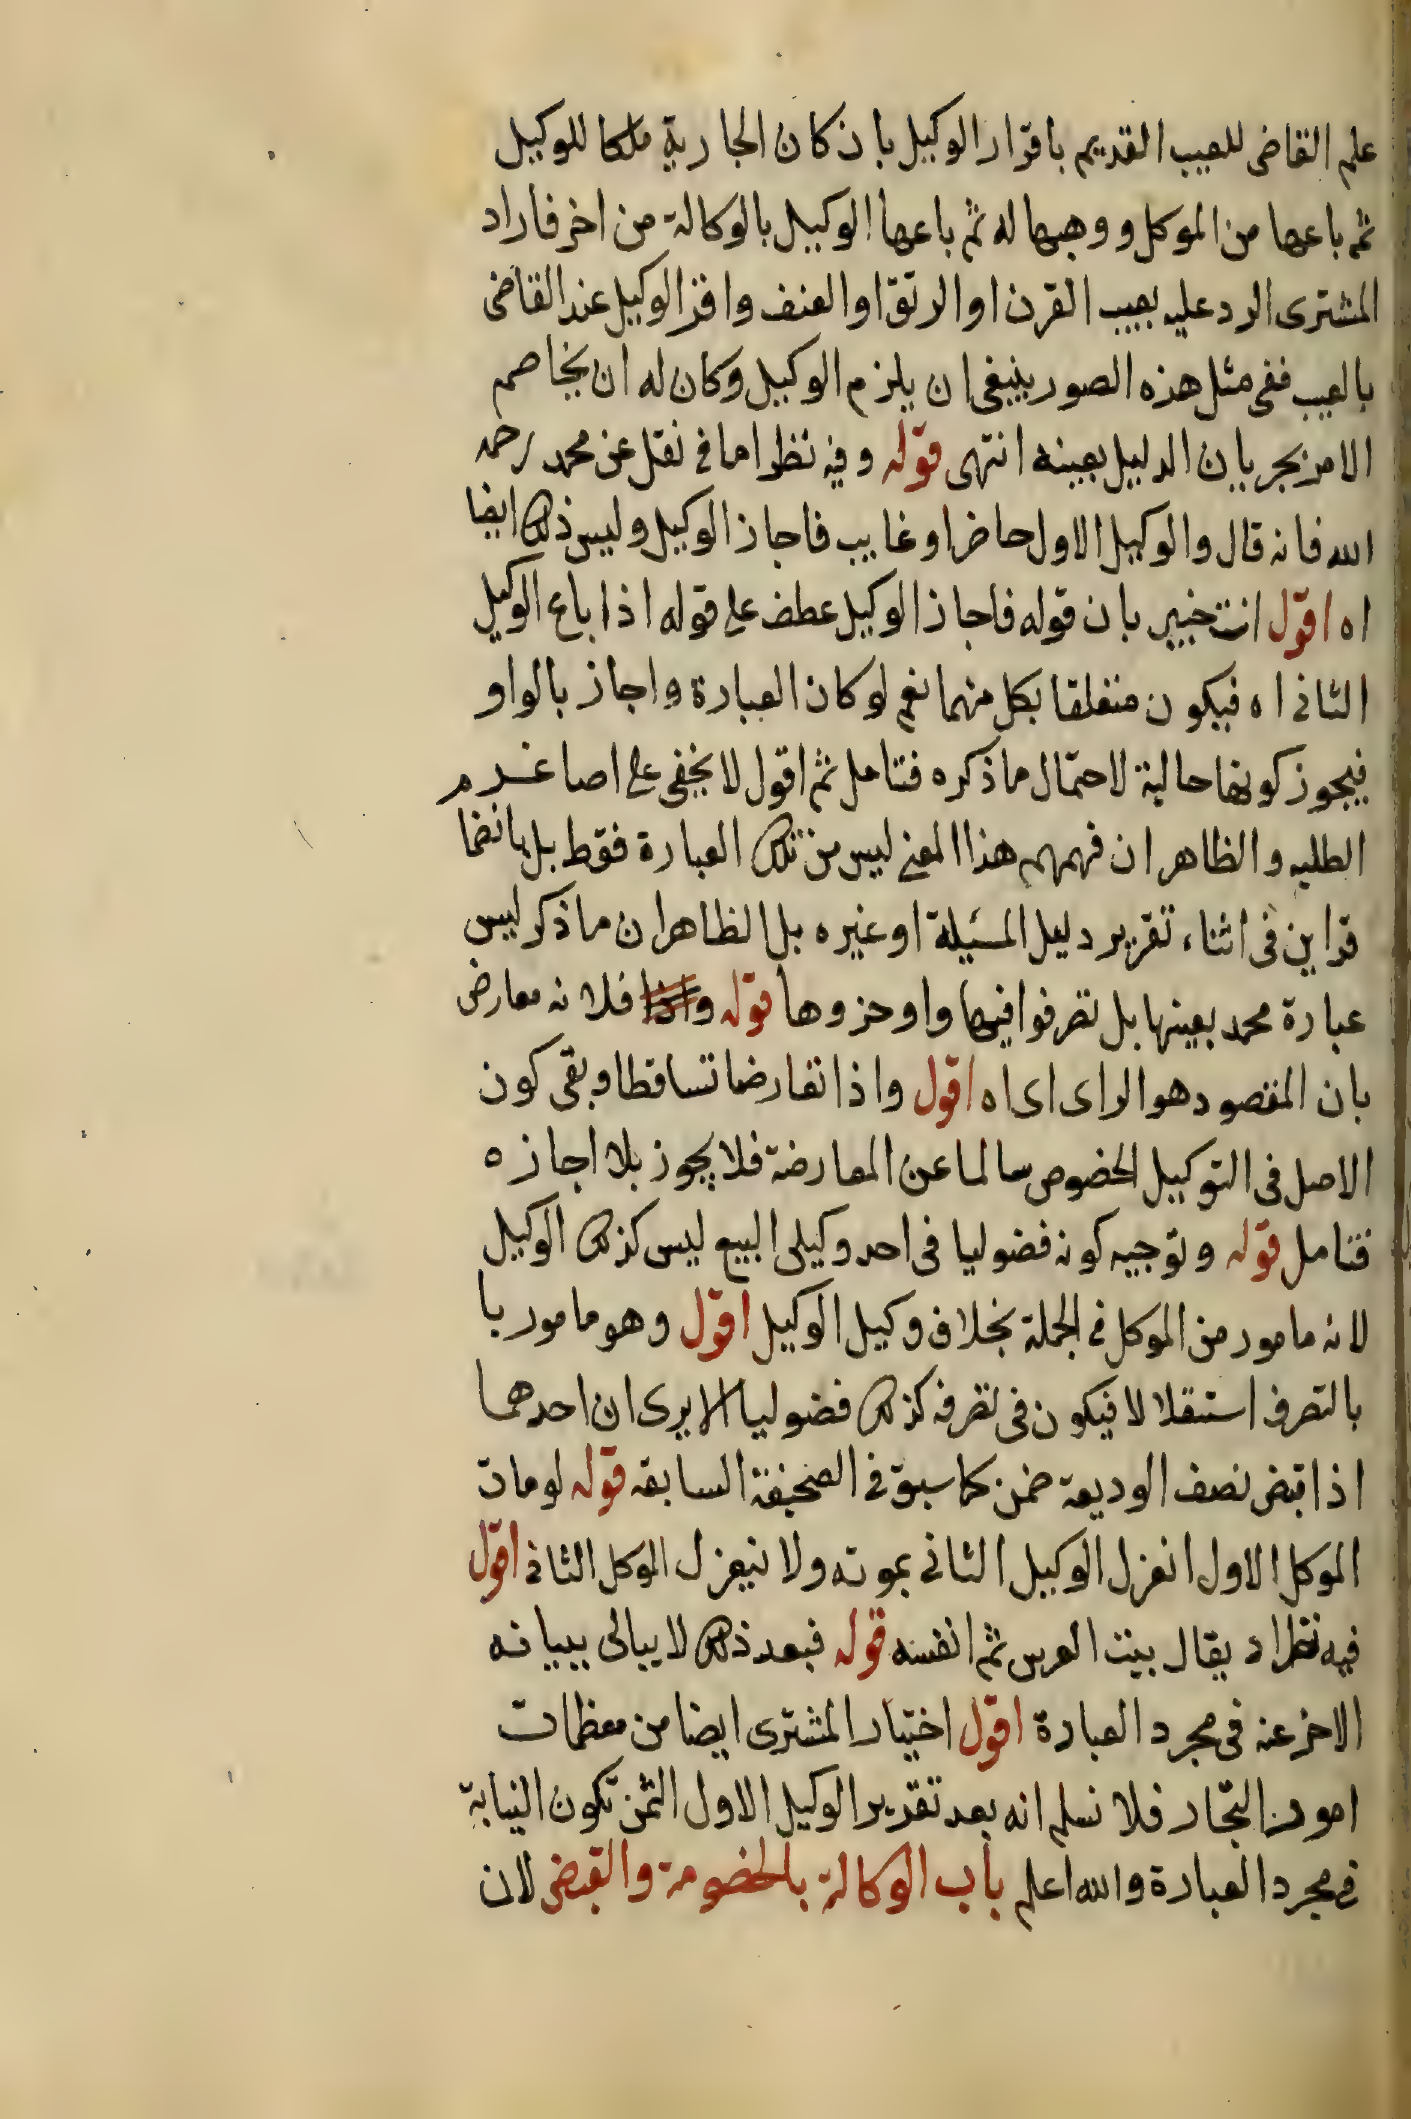 علم القاضى للعيب القديم باقرار الوكيل بان كان الجارية ملكا للوكيل
ثم باعها من الموكل و وهبها له ثم باعها الوكيل بالوكالة من اخر فاراد
المشترى الرد عليه بعيب القرن او الرتق او العنف واقر الوكيل عند القاضى
بالعيب ففى مثل هذه الصور ينبغى ان يلزم الوكيل وكان له ان يخاصم
الامر بجريان الدليل بعينه انتهى قوله وفيه نظر اما فى نقل عن محمد رحمه
الله فانه قال والوكيل الاول حاضر او غايب فاجاز الوكيل وليس ذلك ايضا
اه اقول انت خبير بان قوله فاجاز الوكيل عطف على قوله اذا باع الوكيل
الثانى اه فيكون متعلقا بكل منهما نعم لو كان العبارة واجاز بالواو
فيجوز كونها حالية لاحتمال ما ذكره فتامل ثم اقول لا يخفى على اصاغرم
الطلبه والظاهر ان فهمهم هذا المعنى ليس من تلك العبارة فقط بل بانضما
قراين فى اثناء تقرير دليل المسئيلة او غيره بل الظاهر ان ما ذكر ليس
عبارة محمد بعينها بل تصرفوا فيها واوجزوها قوله و فلانه معارض
بان المقصود هو الراى اى اه اقول واذا تعارضا تساقطا وبقى كون
الاصل فى التوكيل الخصوص سالما عن المعارضة فلا يجوز بلا اجازه
فتامل قوله وتوجيه كونه فضوليا فى احد وكيلى البيع ليس كذلك الوكيل
لانه مامور من الموكل فى الجملة بخلاف وكيل الوكيل اقول وهو مامور با
بالتصرف استقلالا لا فيكون فى تصرفه كذلك فضوليا الا يرى ان احدهما
اذا قبض نصف الوديعة ضمن كما سبق فى الصحيفة السابقه قوله لو مات
الموكل الاول انعزل الوكيل الثانى بموته ولا نيعزل الموكل الثانى اقول
فيه نظر اد يقال بيت العرس ثم انفسه قوله فبعد ذلك لا يبالى ببيانه
الاخر عنه فى مجرد العبارة اقول اختيار المشترى ايضا من معظمات
امور التجار فلا نسلم انه بعد تقدير الوكيل الاول الثمن تكون النيابة
فى مجرد العبارة والله اعلم باب الوكالة بالخضومة والقبض لان